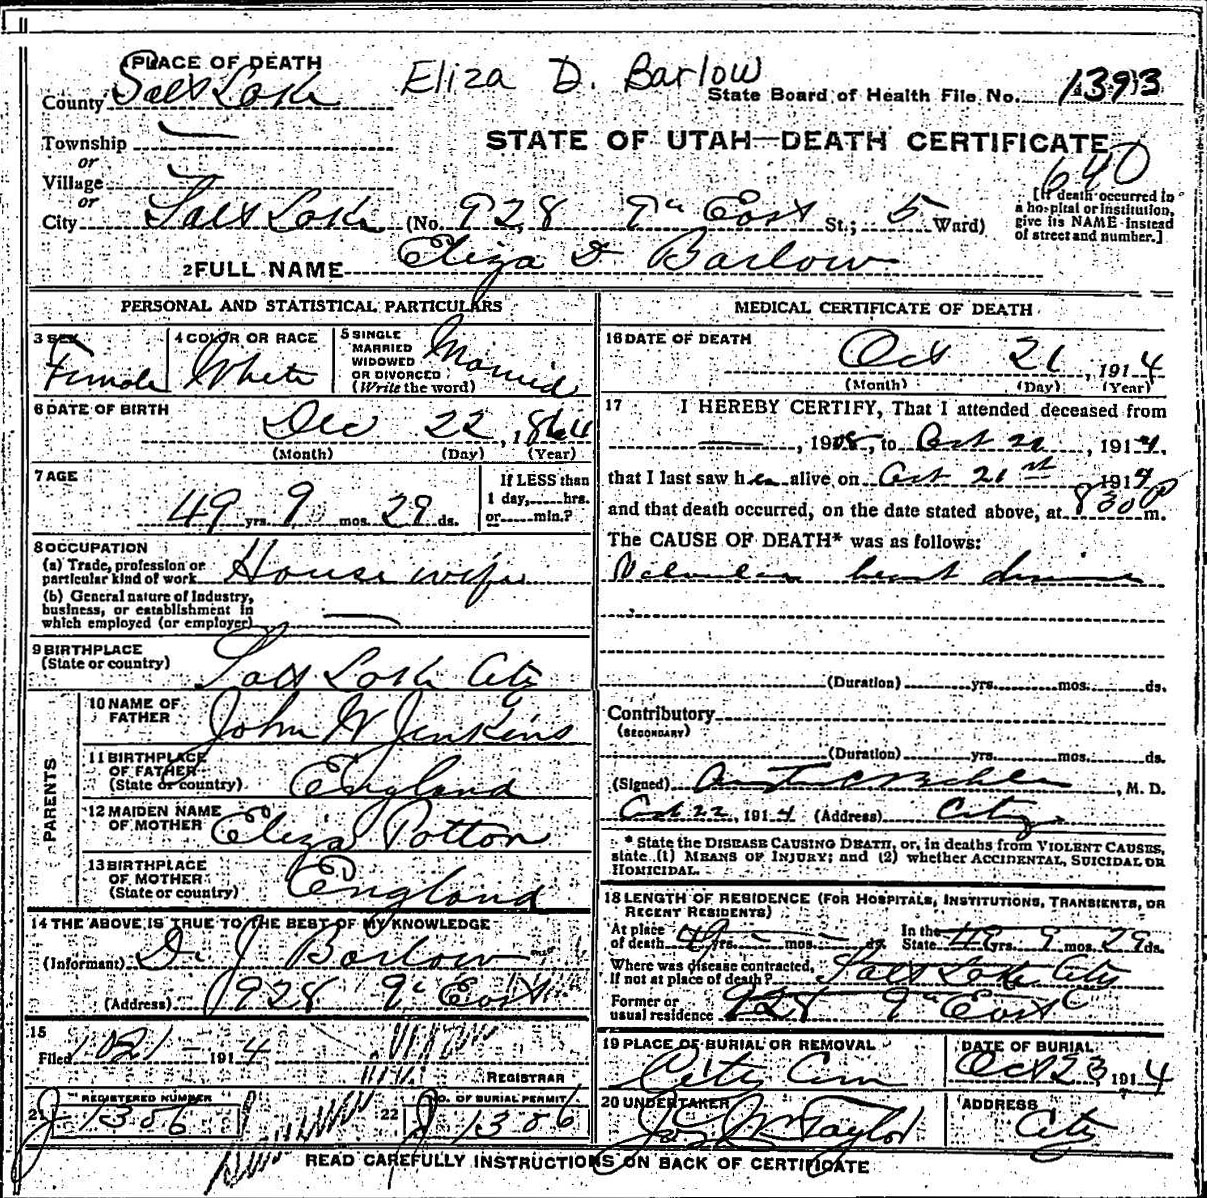 PLACE OF DEATH
County Salt Lake
Eliza D. Barlow
State Board of Health File No. 1393
Township
or
STATE OF UTAH—DEATH CERTIFICATE
640
Village
or
City Salt Lake (No. 928 9th East St.; 5 Ward)
[If death occurred in a hospital or institution, give its NAME instead of street and number.]
2 FULL NAME Eliza D Barlow
PERSONAL AND STATISTICAL PARTICULARS
3 SEX Female
4 COLOR OR RACE White
5 SINGLE MARRIED WIDOWED OR DIVORCED (Write the word) Married
6 DATE OF BIRTH Dec 22, 1864
(Month) (Day) (Year)
7 AGE 49 yrs. 9 mos. 29 ds.
If LESS than 1 day, hrs. or min.?
8 OCCUPATION
(a) Trade, profession or particular kind of work Housewife
(b) General nature of Industry, business, or establishment in which employed (or employer)
9 BIRTHPLACE
(State or country) Salt Lake City
PARENTS
10 NAME OF FATHER John W Jenkins
11 BIRTHPLACE OF FATHER (State or country) England
12 MAIDEN NAME OF MOTHER Eliza Patton
13 BIRTHPLACE OF MOTHER (State or country) England
14 THE ABOVE IS TRUE TO THE BEST OF MY KNOWLEDGE
(Informant) D. J Barlow
(Address) 928 9th East
15
Filed 1021 - 1914
REGISTRAR
21 REGISTERED NUMBER 1306
22 NO. OF BURIAL PERMIT 1306
MEDICAL CERTIFICATE OF DEATH
16 DATE OF DEATH Oct 21, 1914
(Month) (Day) (Year)
17 I HEREBY CERTIFY, That I attended deceased from
1908, to Oct 21, 1914,
that I last saw her alive on Oct 21st 1914
and that death occurred, on the date stated above, at 830 P m.
The CAUSE OF DEATH* was as follows:
Valvular heart disease
(Duration) yrs. mos. ds.
Contributory
(SECONDARY)
(Duration) yrs. mos. ds.
(Signed) M. D.
Oct 22, 1914 (Address) City
* State the DISEASE CAUSING DEATH, or, in deaths from VIOLENT CAUSES, state (1) MEANS OF INJURY; and (2) whether ACCIDENTAL, SUICIDAL OR HOMICIDAL.
18 LENGTH OF RESIDENCE (FOR HOSPITALS, INSTITUTIONS, TRANSIENTS, OR RECENT RESIDENTS)
At place of death 49 yrs. mos. ds. In the State 49 yrs. 9 mos. 29 ds.
Where was disease contracted, If not at place of death? Salt Lake City
Former or usual residence 928 9th East
19 PLACE OF BURIAL OR REMOVAL City Cem
DATE OF BURIAL Oct 23 1914
20 UNDERTAKER Taylor
ADDRESS City
READ CAREFULLY INSTRUCTIONS ON BACK OF CERTIFICATE